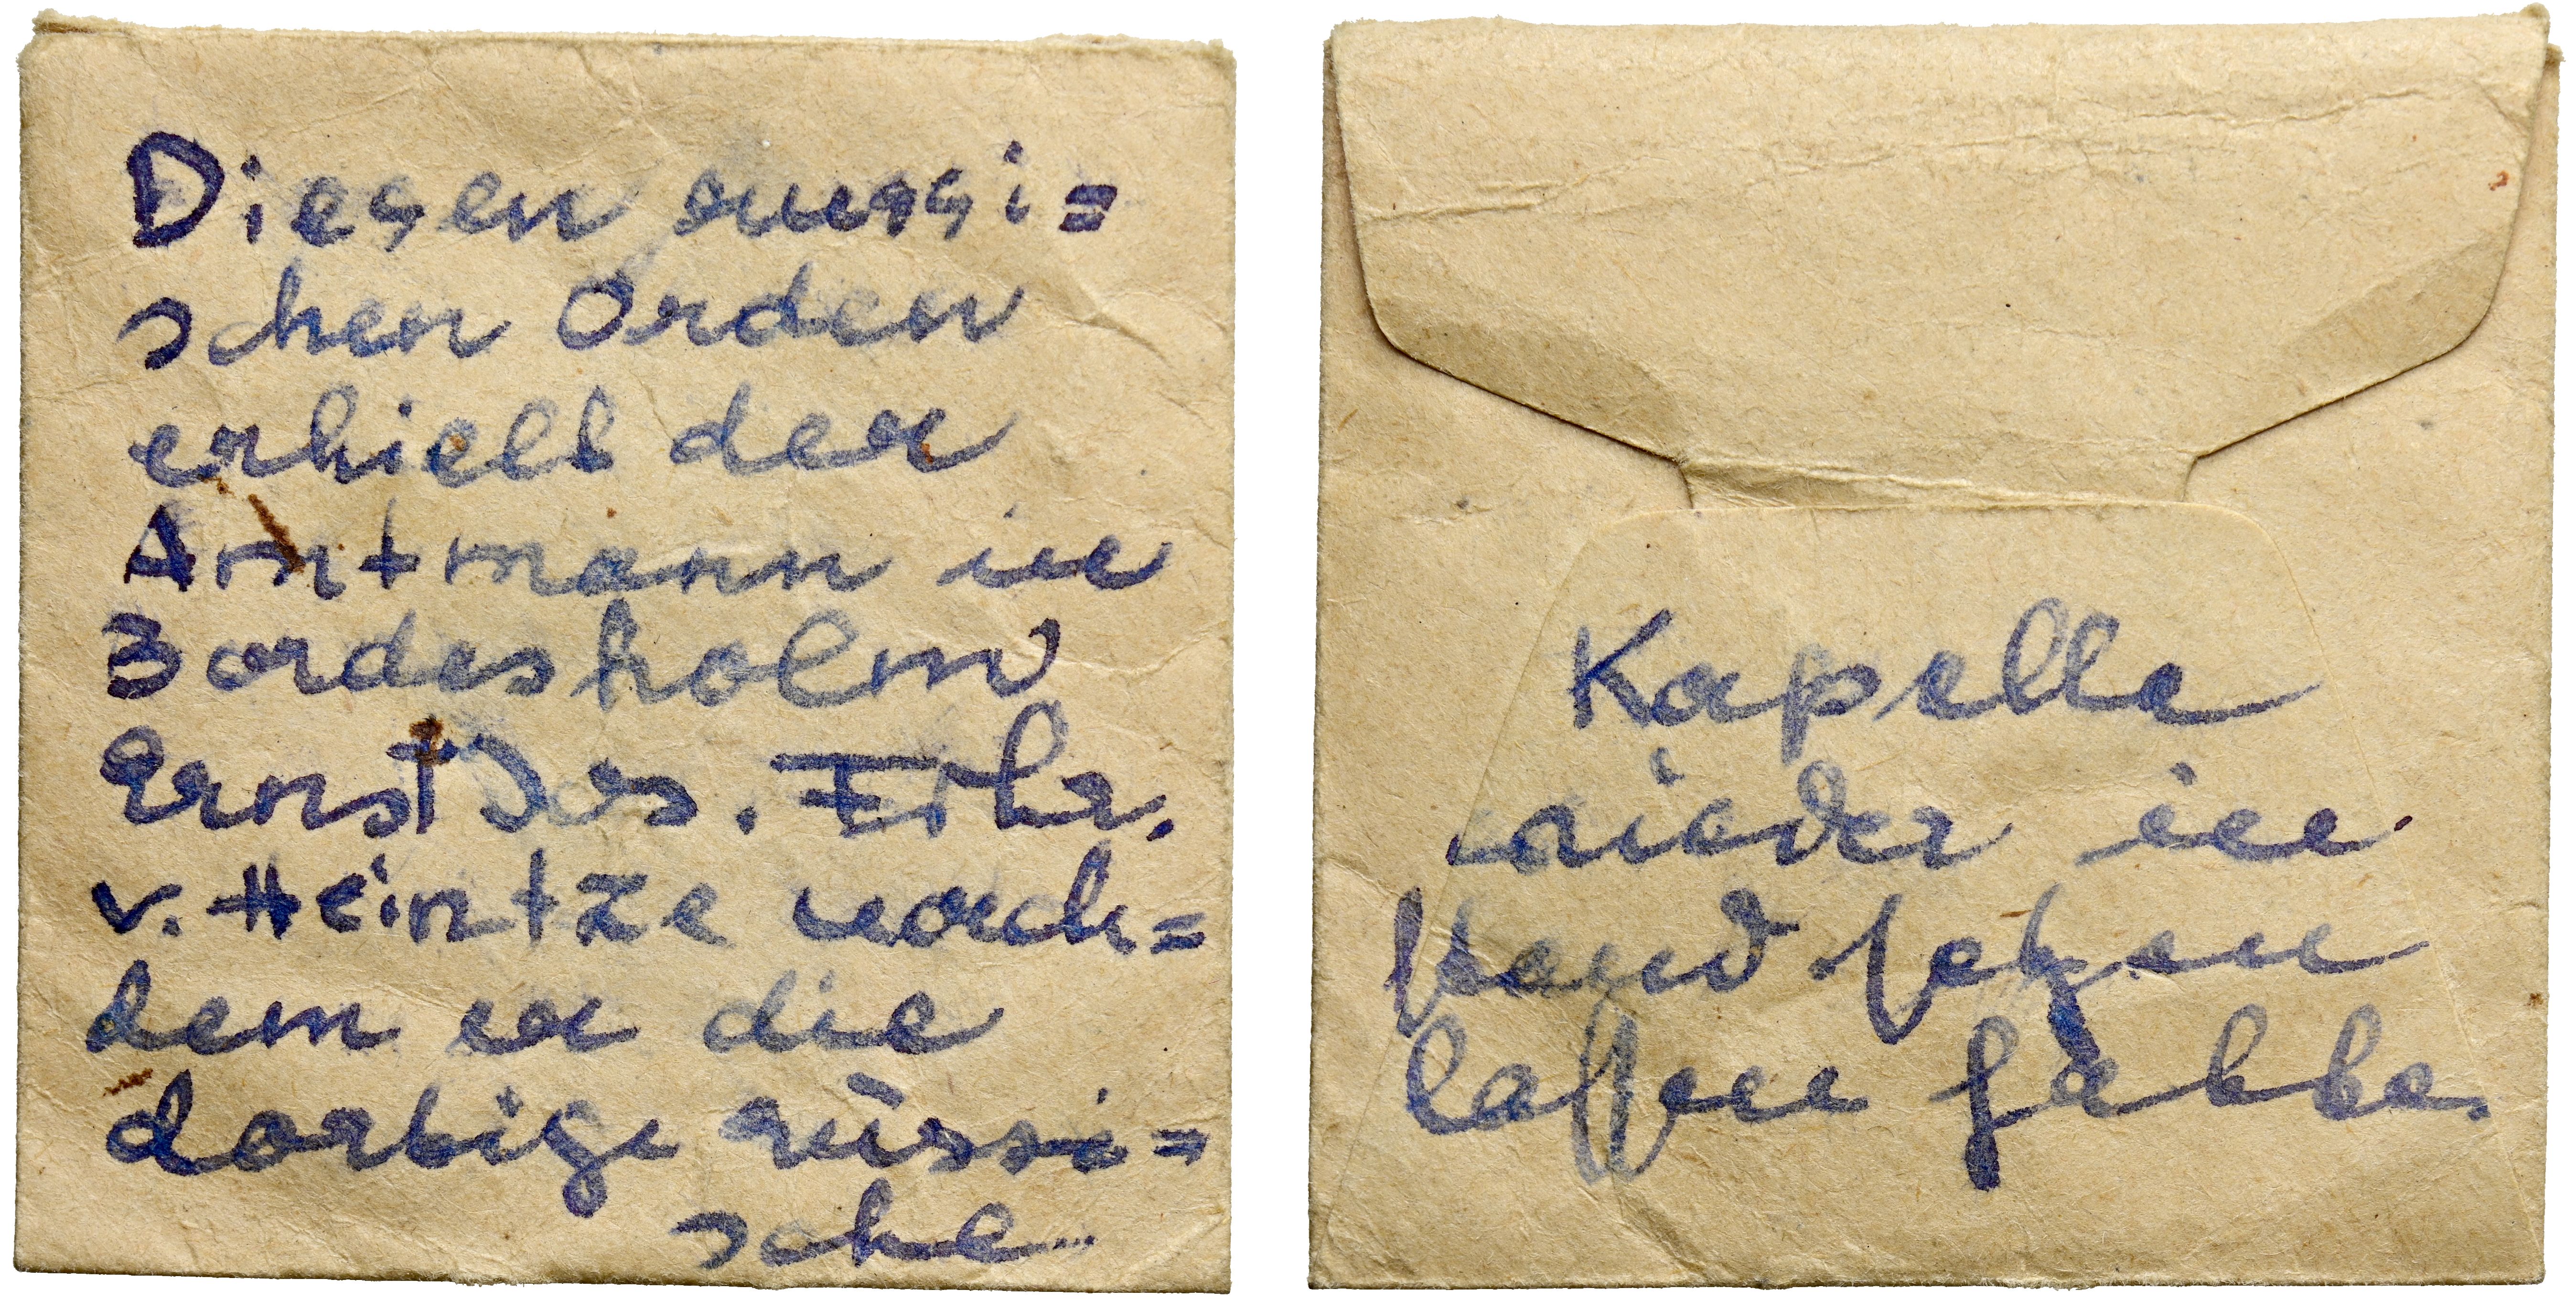 Diesen russi=
schen Orden
erhielt der
Amtmann in
Bordesholm
Ernst Jos. Frhr.
v. Heintze nach=
dem er die
dortige russi=
sche
Kapelle
wieder in
stand setzen
lassen hatte.